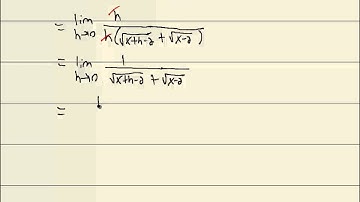 = lim h→0 h / h(√x+h-2 + √x-2)
= lim h→0 1 / √x+h-2 + √x-2
= 1